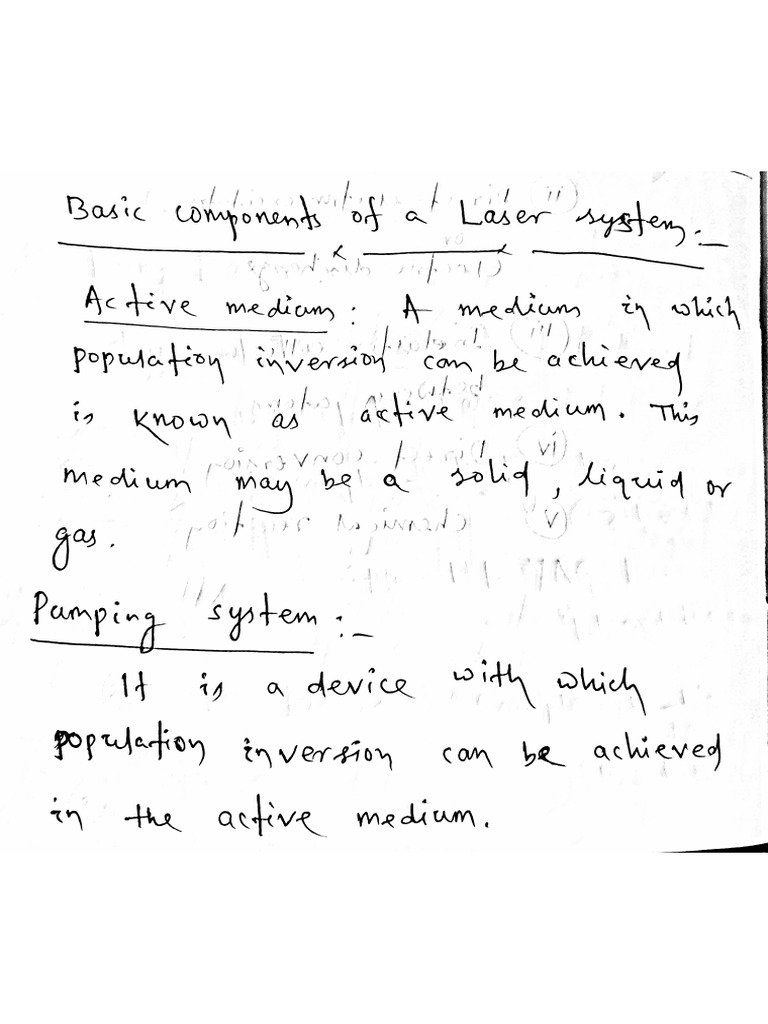 Basic components of a Laser system:-
Active medium: A medium in which
population inversion can be achieved
is known as active medium. This
medium may be a solid, liquid or
gas.
Pumping system:-
It is a device with which
population inversion can be achieved
in the active medium.